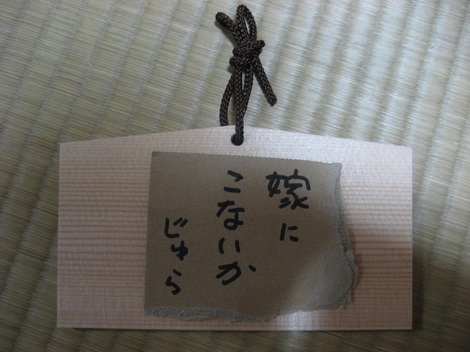 嫁に
こないか
じゅら